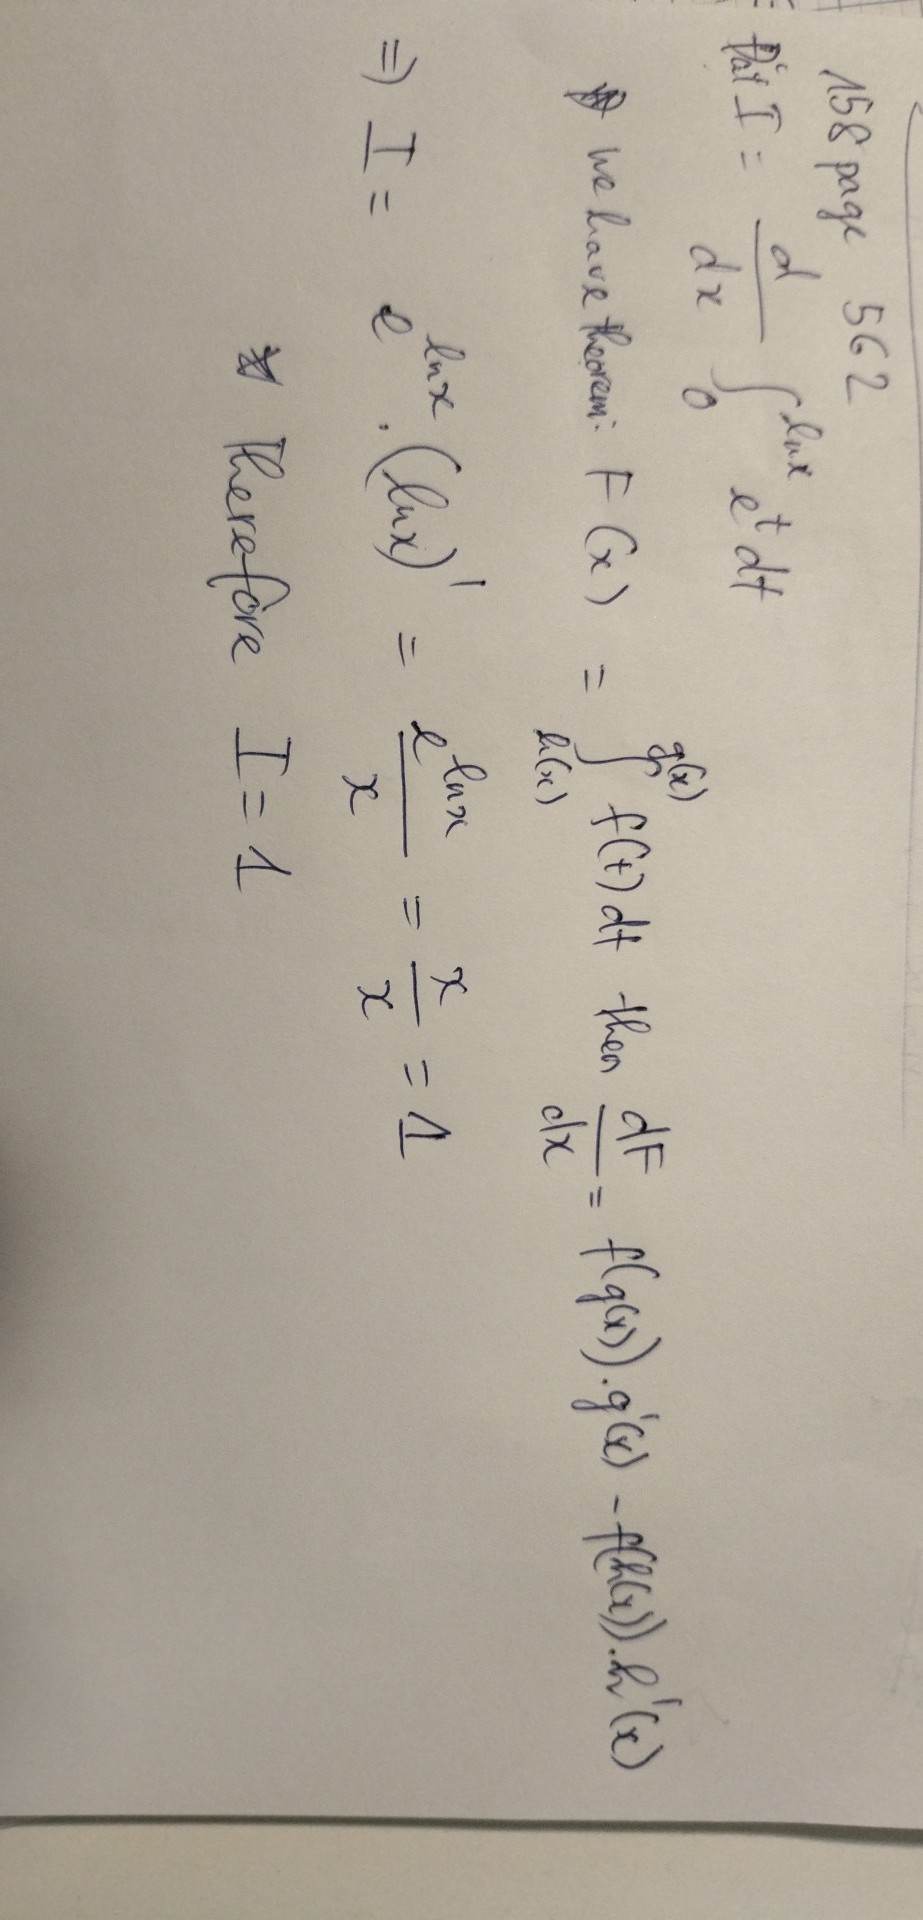 158 page 562
Đặt I = d/dx ∫₀^{lnx} e^t dt
we have theorem: F(x) = ∫_{h(x)}^{g(x)} f(t) dt then dF/dx = f(g(x)).g'(x) - f(h(x)).h'(x)
=> I = e^{lnx}.(lnx)' = e^{lnx}/x = x/x = 1
Therefore I = 1